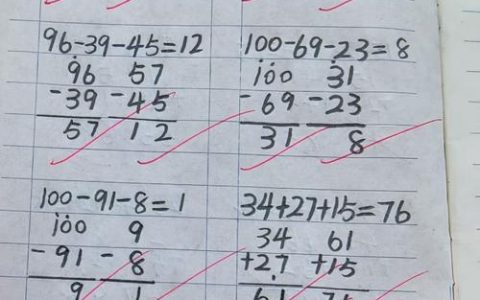 96-39-45=12
96 57
-39 -45
57 12
100-69-23=8
100 31
-69 -23
31 8
100-91-8=1
100 9
-91 -8
9 1
34+27+15=76
34 61
+27 +15
61 76